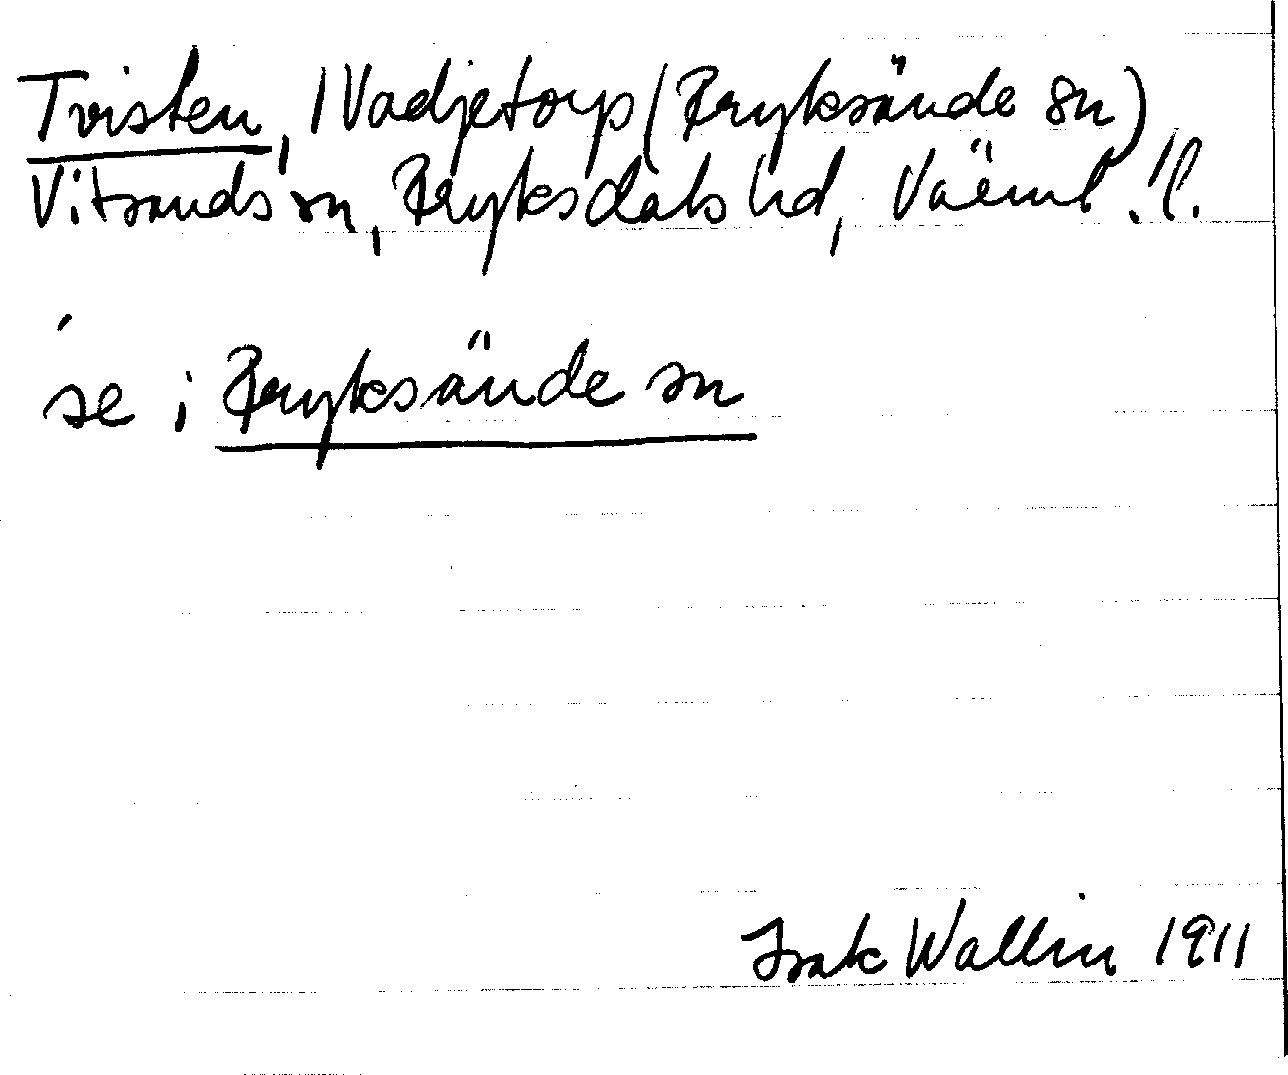 Tvisten, Vadjetorp (Fryksände sn)
Vitsands sn, Fryksdals hd, Värml. ll.
se i Fryksände sn
Isak Wallin 1911